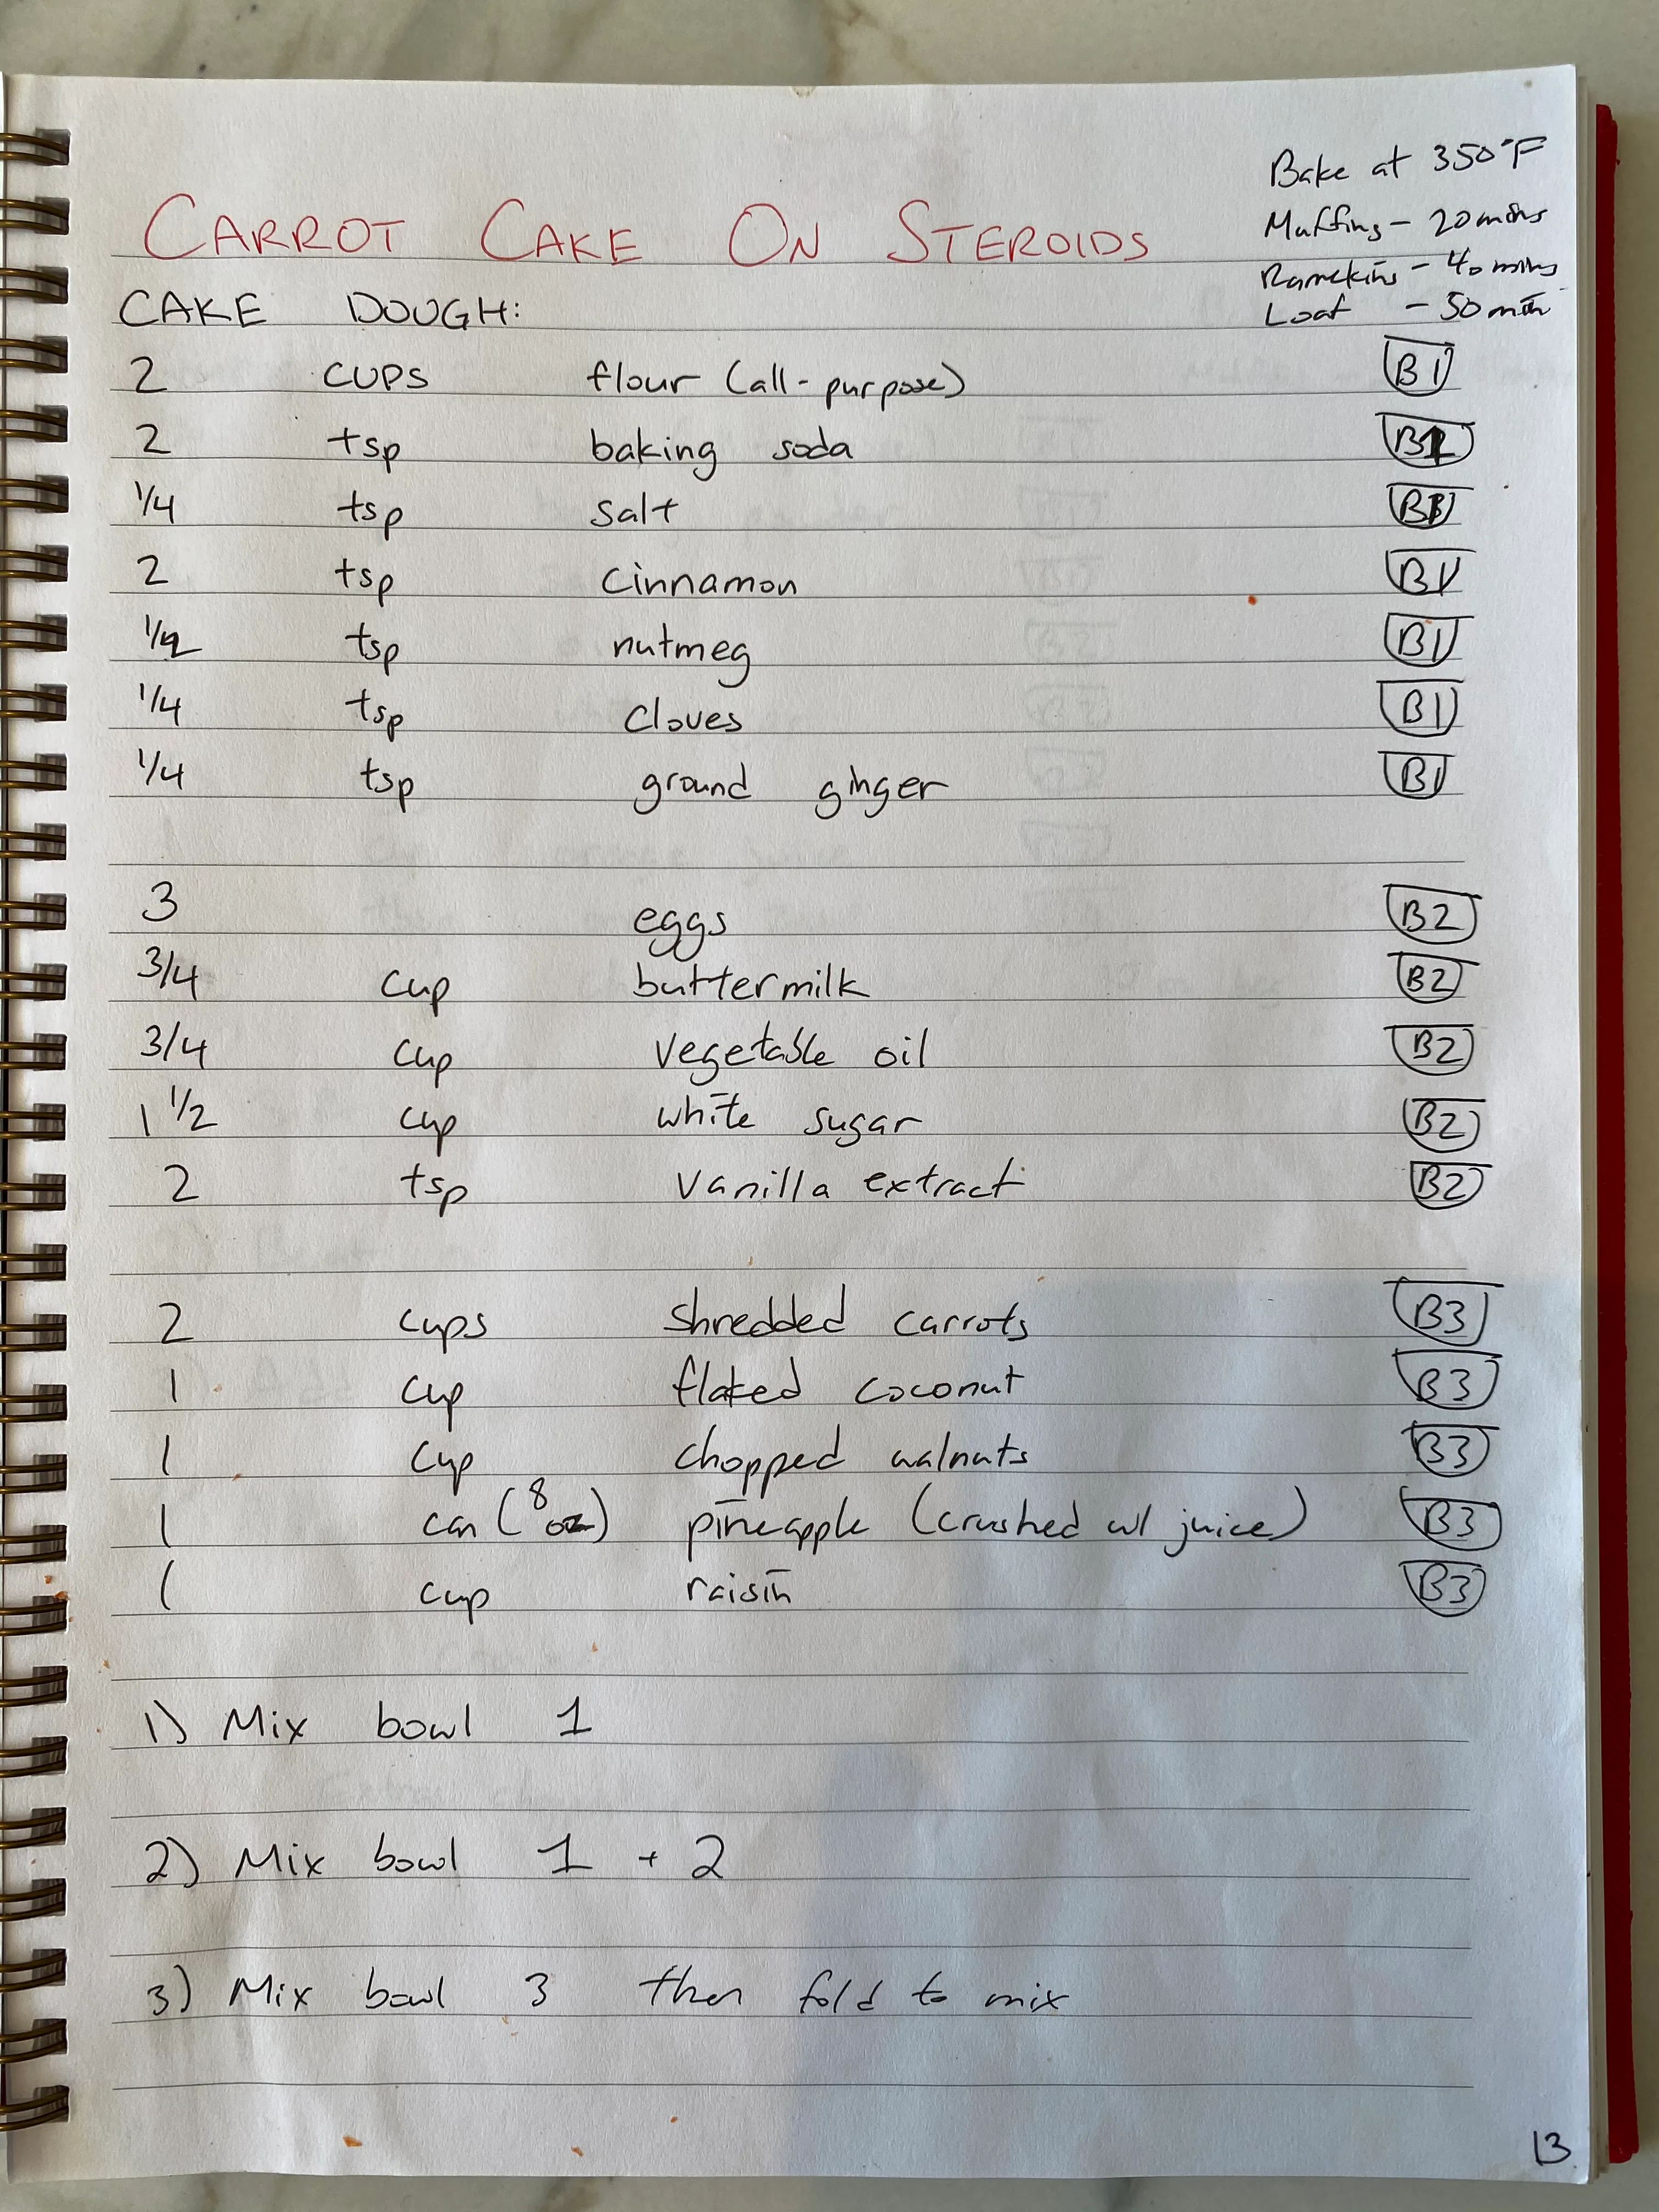 Bake at 350°F
Muffins - 20 mins
Ramekins - 40 mins
Loaf - 50 min
CARROT CAKE ON STEROIDS
CAKE DOUGH:
2 CUPS flour (all-purpose) B1
2 tsp baking soda B1
1/4 tsp salt B1
2 tsp cinnamon B1
1/2 tsp nutmeg B1
1/4 tsp cloves B1
1/4 tsp ground ginger B1
3 eggs B2
3/4 cup buttermilk B2
3/4 cup vegetable oil B2
1 1/2 cup white sugar B2
2 tsp vanilla extract B2
2 cups shredded carrots B3
1 cup flaked coconut B3
1 cup chopped walnuts B3
1 can (8 oz) pineapple (crushed w/ juice) B3
1 cup raisin B3
1) Mix bowl 1
2) Mix bowl 1 + 2
3) Mix bowl 3 then fold to mix
13